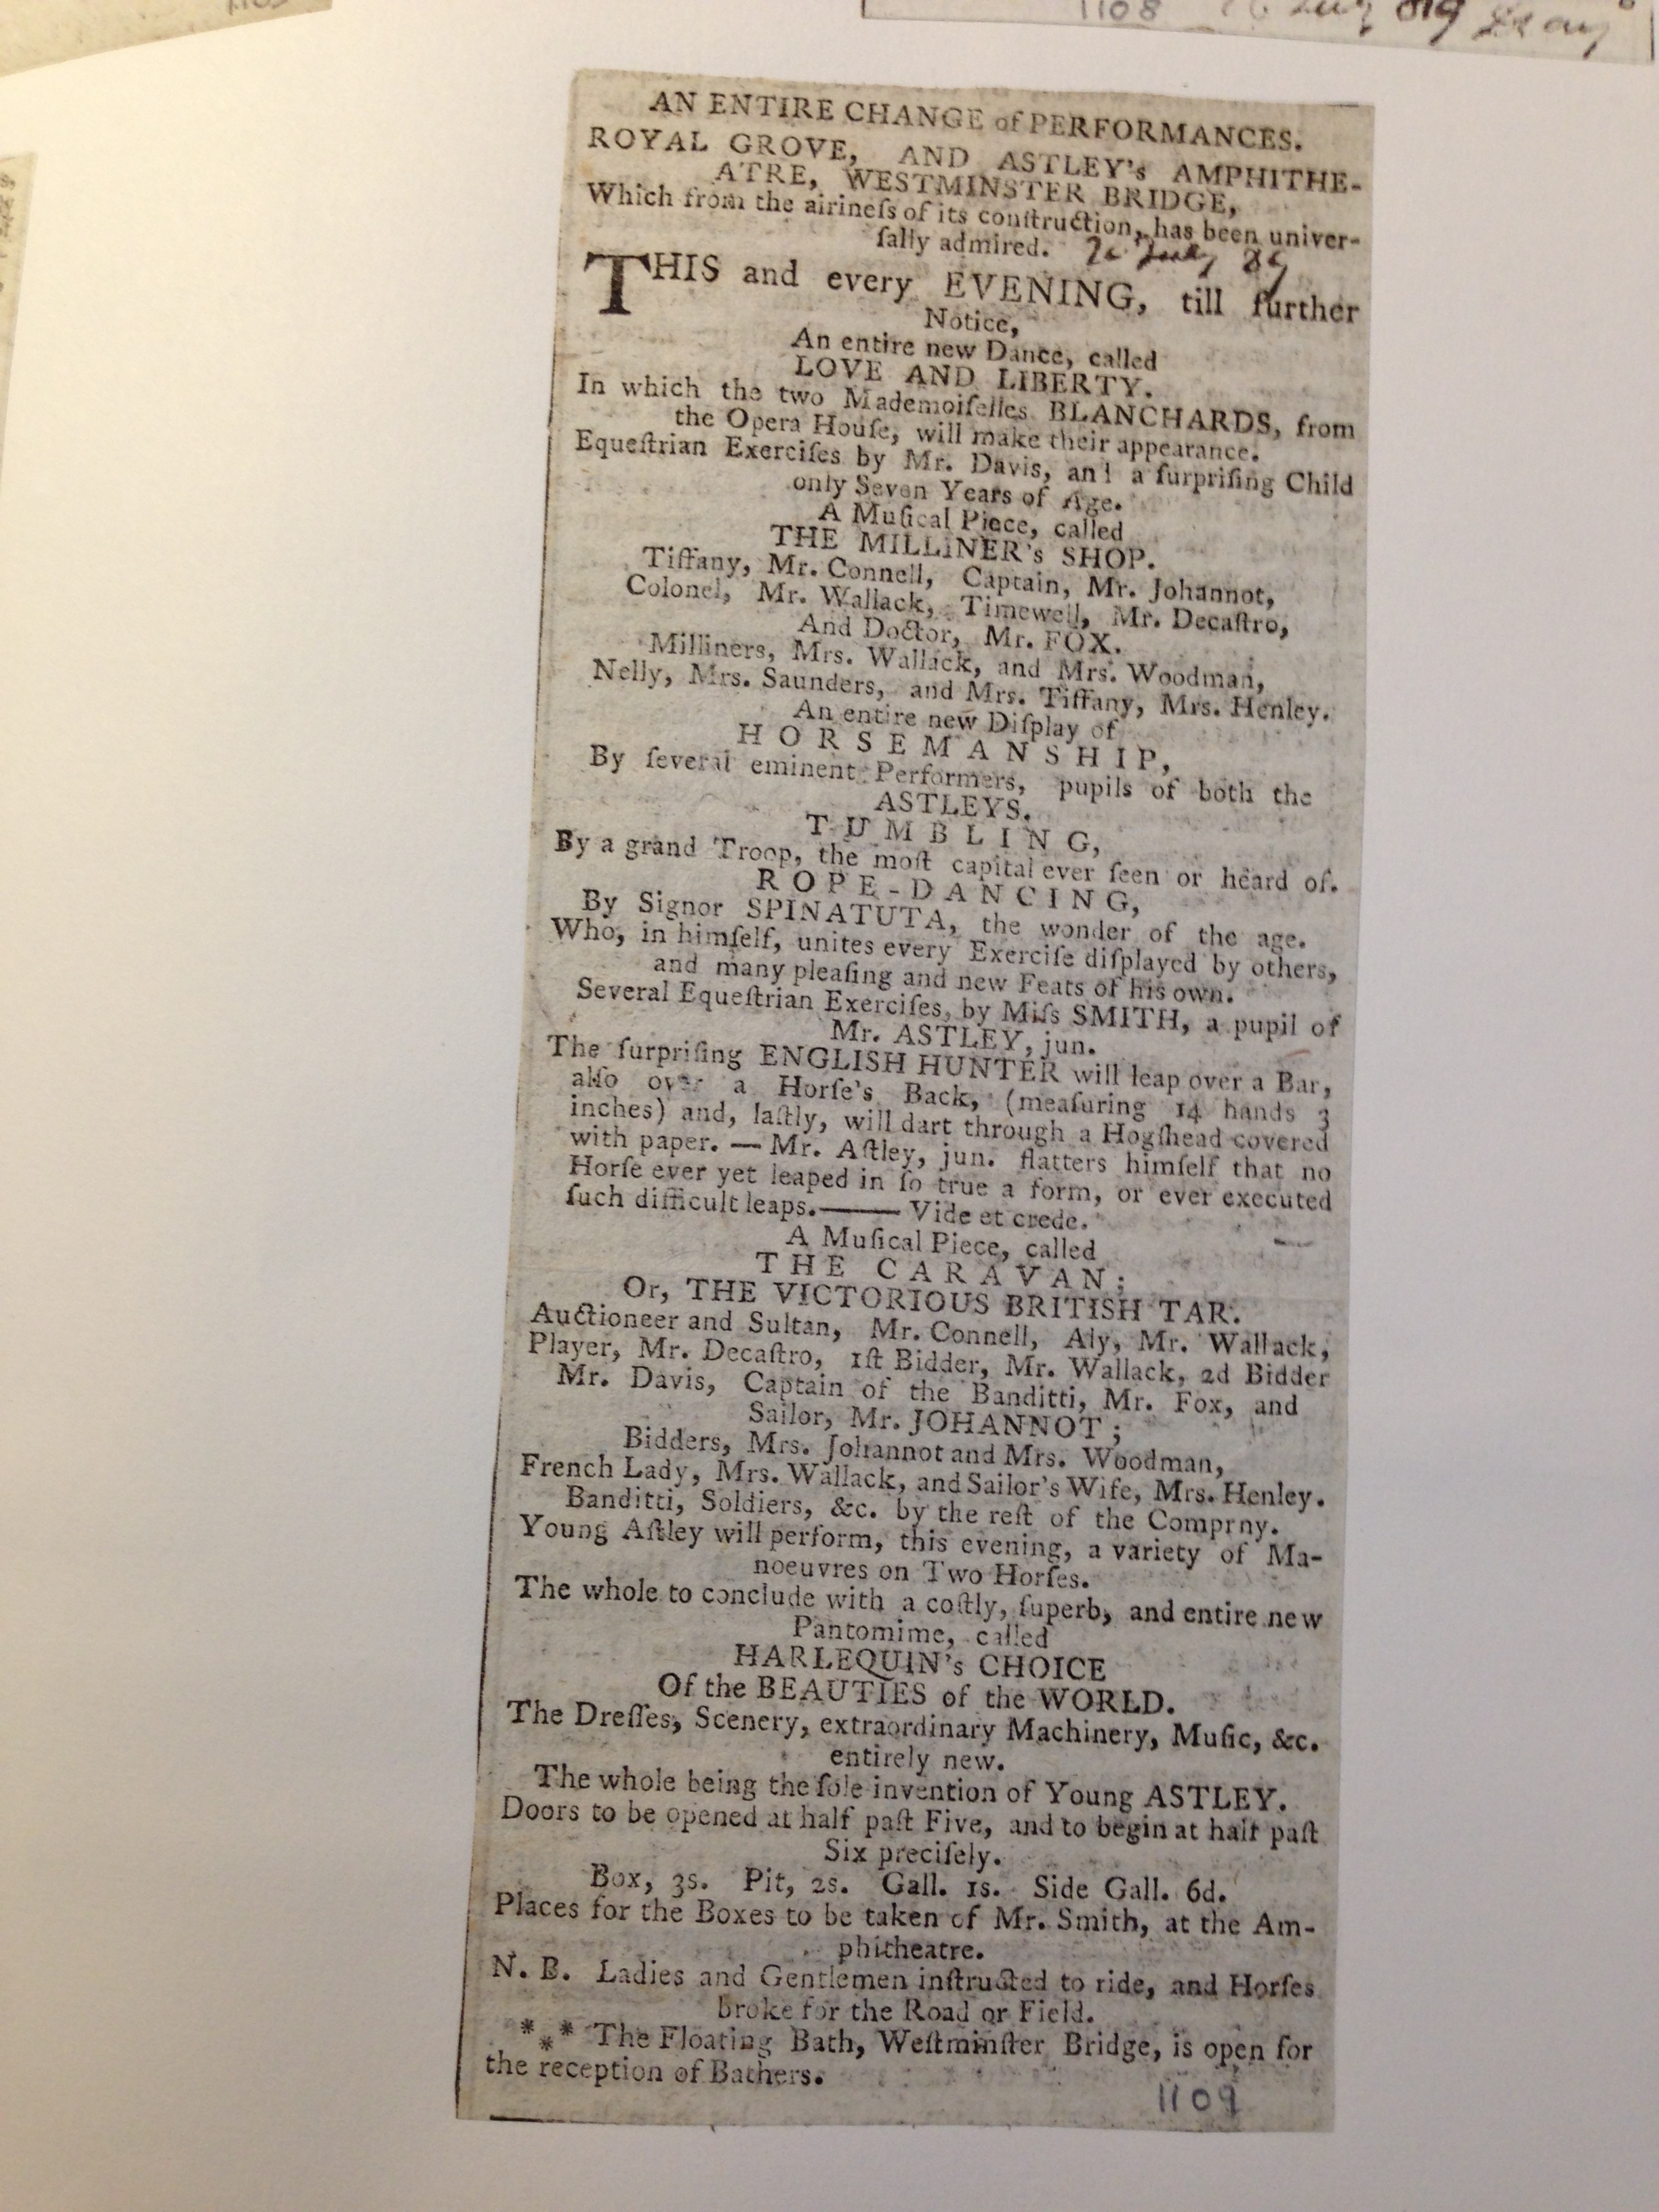 1108
AN ENTIRE CHANGE of PERFORMANCES.
ROYAL GROVE, AND ASTLEY's AMPHITHE-
ATRE, WESTMINSTER BRIDGE,
Which from the airineſs of its conſtruction, has been univer-
ſally admired. July 89
THIS and every EVENING, till further
Notice,
An entire new Dance, called
LOVE AND LIBERTY.
In which the two Mademoiſelles BLANCHARDS, from
the Opera Houſe, will make their appearance.
Equeſtrian Exerciſes by Mr. Davis, and a ſurpriſing Child
only Seven Years of Age.
A Muſical Piece, called
THE MILLINER's SHOP.
Tiffany, Mr. Connell, Captain, Mr. Johannot,
Colonel, Mr. Wallack, Timewell, Mr. Decaſtro,
And Doctor, Mr. FOX.
Milliners, Mrs. Wallack, and Mrs. Woodman,
Nelly, Mrs. Saunders, and Mrs. Tiffany, Mrs. Henley.
An entire new Diſplay of
HORSEMANSHIP,
By ſeveral eminent Performers, pupils of both the
ASTLEYS.
TUMBLING,
By a grand Troop, the moſt capital ever ſeen or heard of.
ROPE-DANCING,
By Signor SPINATUTA, the wonder of the age.
Who, in himſelf, unites every Exerciſe diſplayed by others,
and many pleaſing and new Feats of his own.
Several Equeſtrian Exerciſes, by Miſs SMITH, a pupil of
Mr. ASTLEY, jun.
The ſurpriſing ENGLISH HUNTER will leap over a Bar,
alſo over a Horſe's Back, (meaſuring 14 hands 3
inches) and, laſtly, will dart through a Hogſhead covered
with paper. — Mr. Aſtley, jun. flatters himſelf that no
Horſe ever yet leaped in ſo true a form, or ever executed
ſuch difficult leaps.—— Vide et crede.
A Muſical Piece, called
THE CARAVAN;
Or, THE VICTORIOUS BRITISH TAR.
Auctioneer and Sultan, Mr. Connell, Aly, Mr. Wallack,
Player, Mr. Decaſtro, 1ſt Bidder, Mr. Wallack, 2d Bidder
Mr. Davis, Captain of the Banditti, Mr. Fox, and
Sailor, Mr. JOHANNOT;
Bidders, Mrs. Johannot and Mrs. Woodman,
French Lady, Mrs. Wallack, and Sailor's Wife, Mrs. Henley.
Banditti, Soldiers, &c. by the reſt of the Comprny.
Young Aſtley will perform, this evening, a variety of Ma-
noeuvres on Two Horſes.
The whole to conclude with a coſtly, ſuperb, and entire new
Pantomime, called
HARLEQUIN's CHOICE
Of the BEAUTIES of the WORLD.
The Dreſſes, Scenery, extraordinary Machinery, Muſic, &c.
entirely new.
The whole being the ſole invention of Young ASTLEY.
Doors to be opened at half paſt Five, and to begin at half paſt
Six preciſely.
Box, 3s. Pit, 2s. Gall. 1s. Side Gall. 6d.
Places for the Boxes to be taken of Mr. Smith, at the Am-
phitheatre.
N. B. Ladies and Gentlemen inſtructed to ride, and Horſes
broke for the Road or Field.
*** The Floating Bath, Weſtminſter Bridge, is open for
the reception of Bathers.
1109